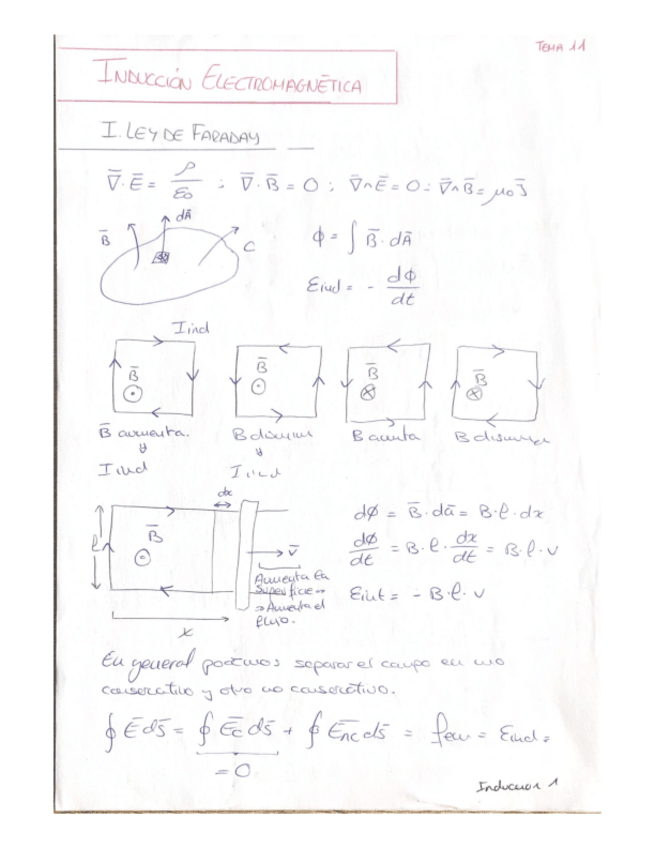 TEMA 11
INDUCCIÓN ELECTROMAGNÉTICA
I. LEY DE FARADAY
∇̄·Ē = ρ/ε₀ ; ∇̄·B̄ = 0 ; ∇̄∧Ē = 0 ; ∇̄∧B̄ = μ₀J̄
B̄ dĀ C
ϕ = ∫ B̄·dĀ
Eind = - dϕ/dt
Iind
B̄ B̄ B̄ B̄
B̄ aumenta. B disminu B aumta B disminuye
⇓ ⇓
Iind Iind
dx
l B̄ v̄
Aumenta la
superficie ⇒
⇒ Aumenta el
flujo.
x
dϕ = B̄·dā = B·l·dx
dϕ/dt = B·l·dx/dt = B·l·v
Eint = - B·l·v
En general podemos separar el campo en uno
conservativo y otro no conservativo.
∮ Ēds̄ = ∮ Ēc ds̄ + ∮ Ēnc ds̄ = fem = Eind =
= 0
Induccion 1